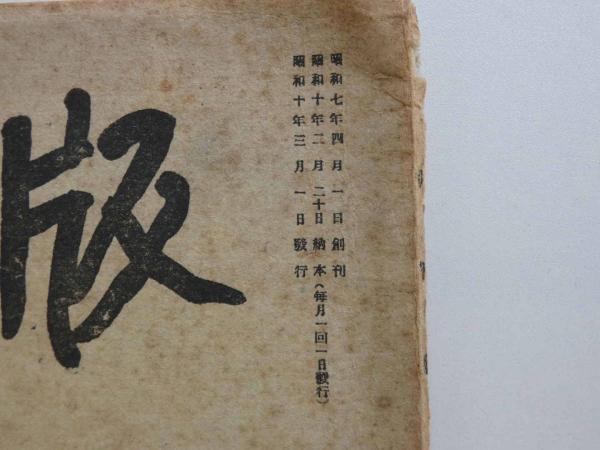 昭和七年四月一日創刊
昭和十年二月二十日納本(每月一回一日發行)
昭和十年三月一日發行
版